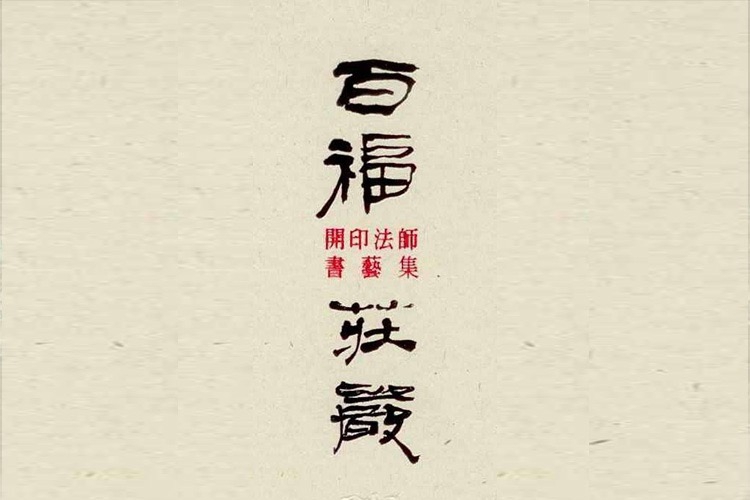 百
福
開印法師
書藝集
莊
嚴